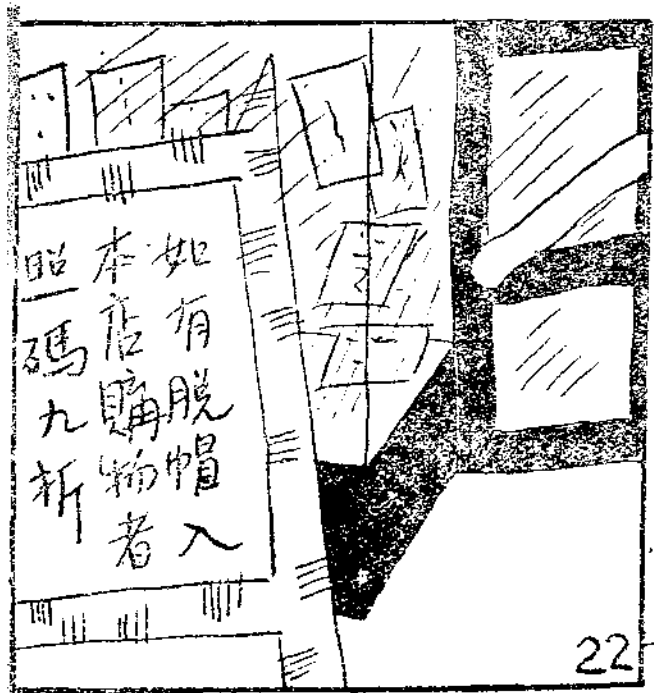 如有脱帽入
本店購物者
照碼九折
22